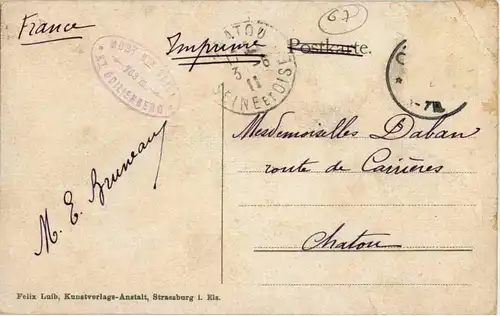 France
67
Imprimé
Postkarte.
MONT
763 m.
ODILIENBERG
CHATOU
3 -6
11
SEINE ET OISE
Mesdemoiselles Daban
route de Carrières
Chatou
M. E. Bruneau
Felix Luib, Kunstverlags-Anstalt, Strassburg i. Els.